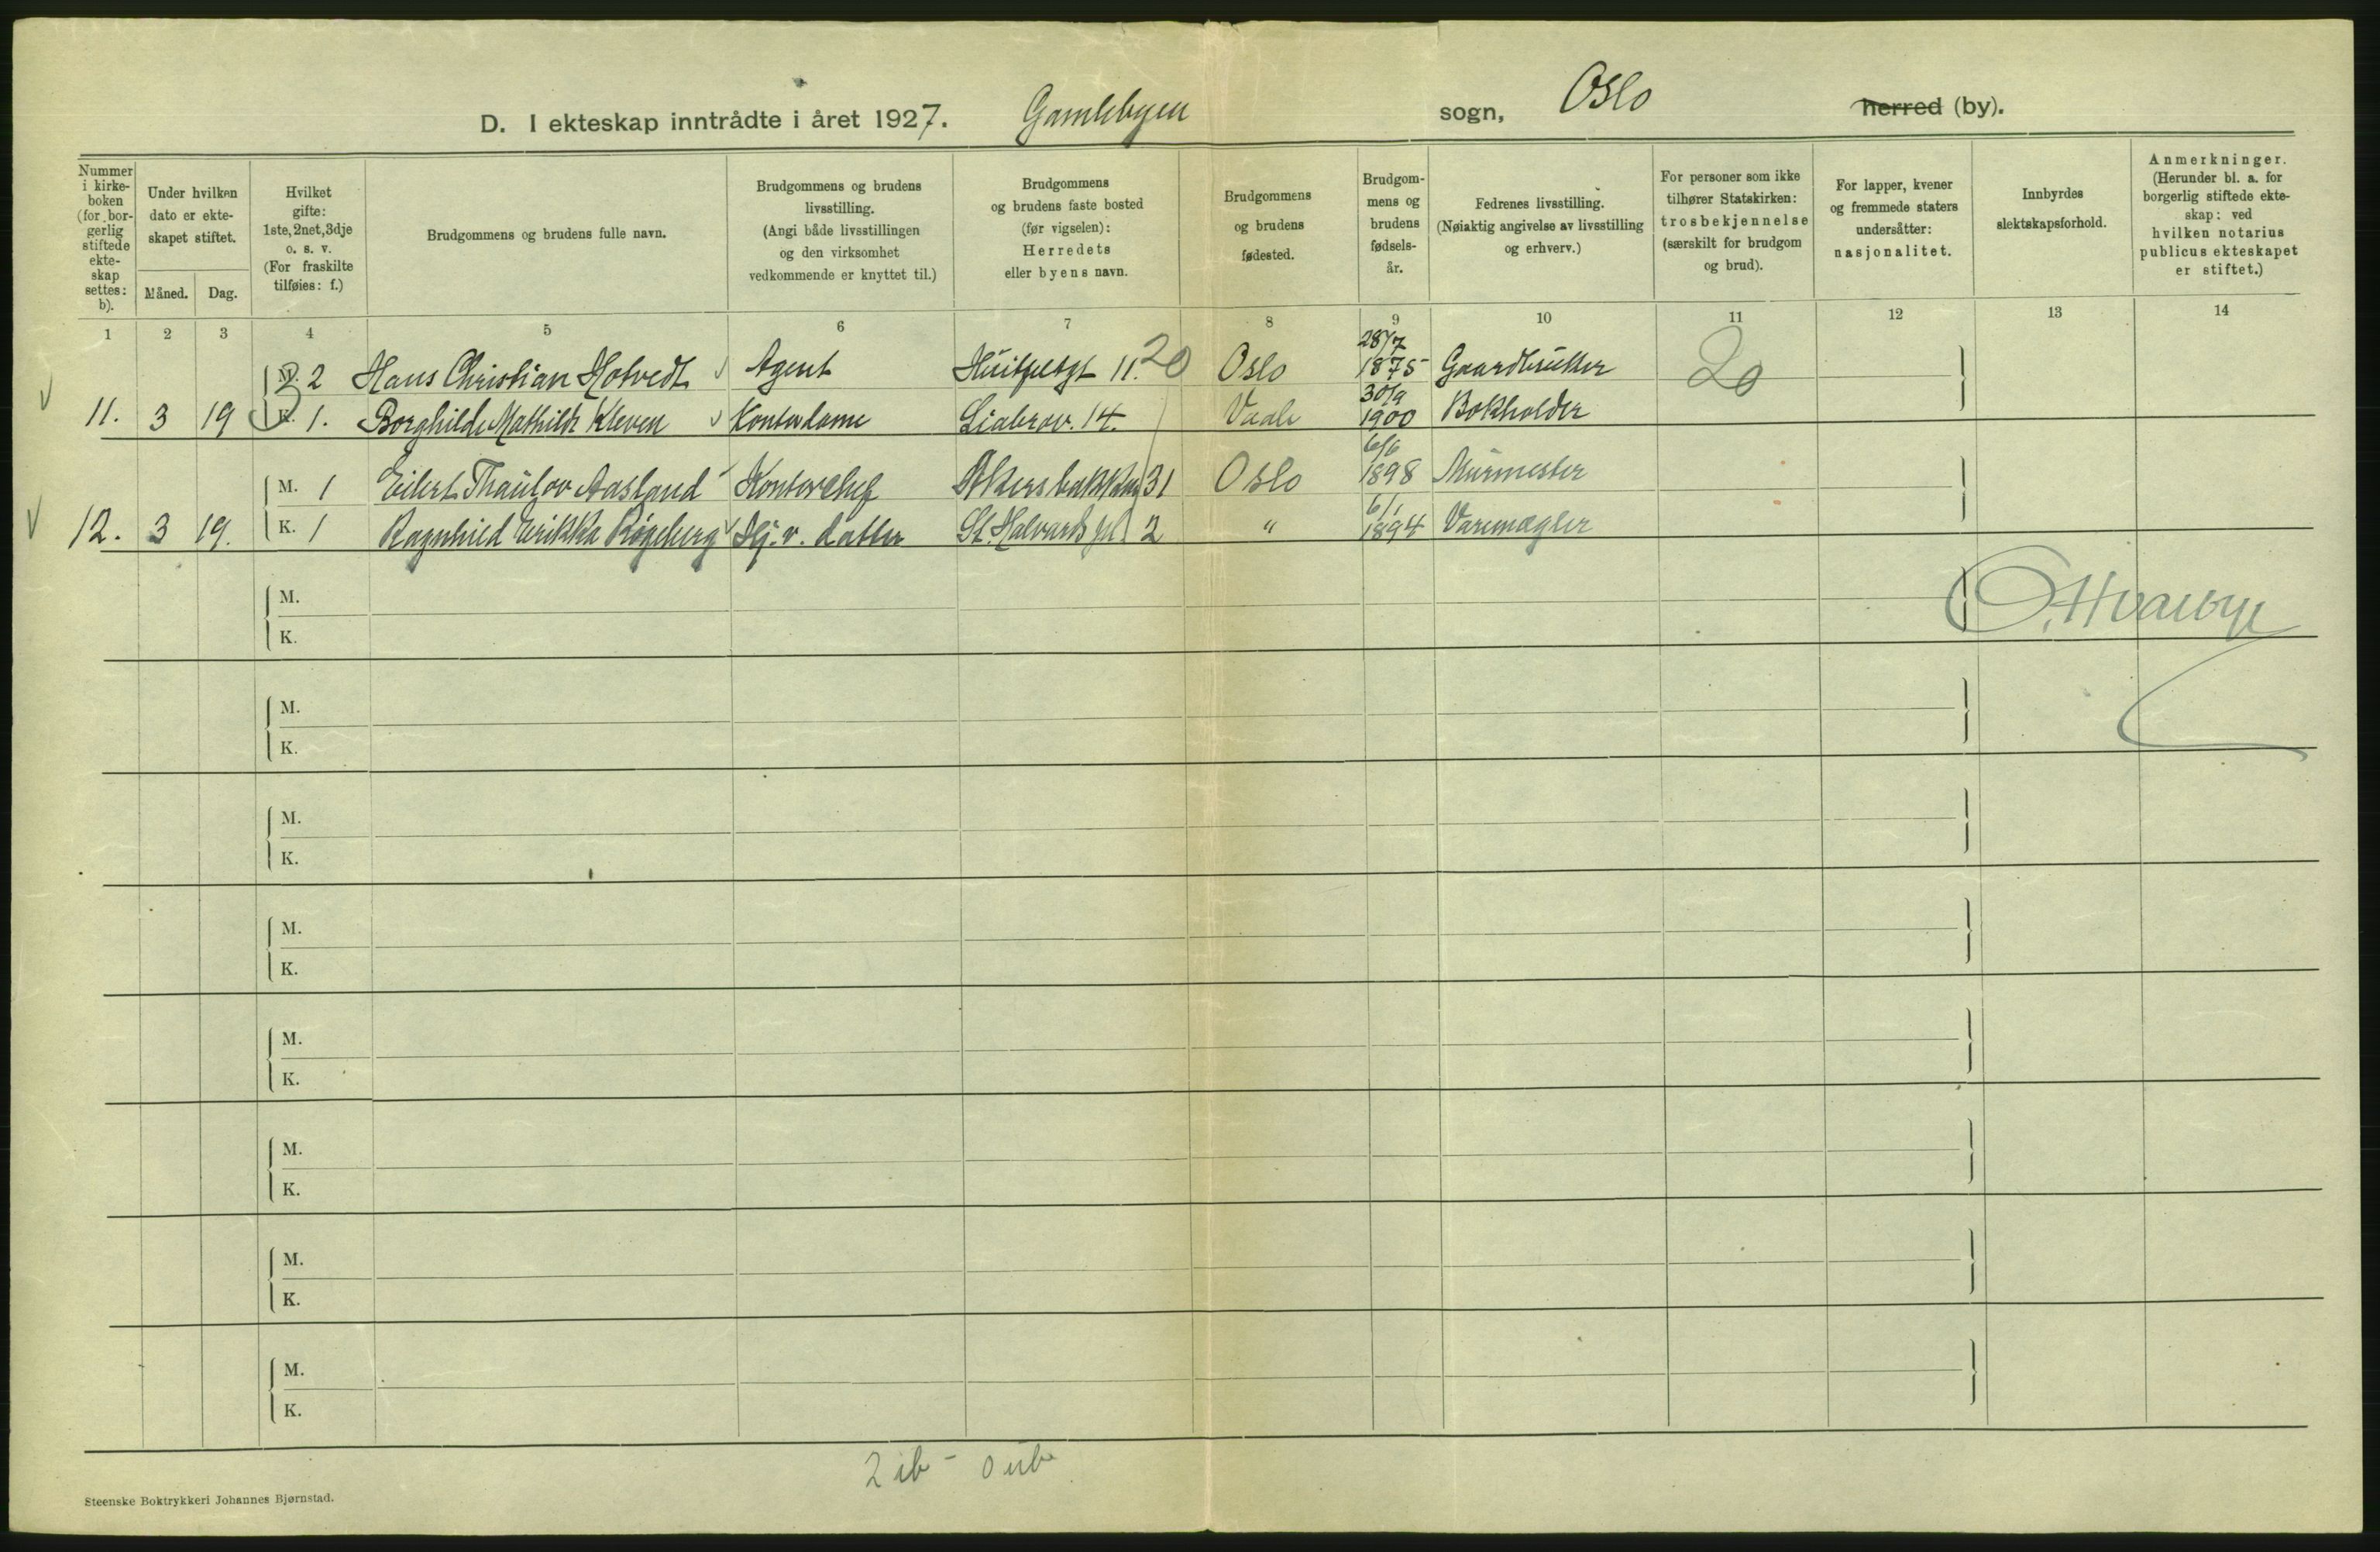 D. I ekteskap inntrådte i året 1927. Gamlebyen sogn, Oslo herred (by).
Nummer i kirkeboken (for borgerlig stiftede ekteskap settes: b).
Under hvilken dato er ekteskapet stiftet.
Måned. Dag.
Hvilket gifte: 1ste, 2net, 3dje o. s. v. (For fraskilte tilføies: f.)
Brudgommens og brudens fulle navn.
Brudgommens og brudens livsstilling. (Angi både livsstillingen og den virksomhet vedkommende er knyttet til.)
Brudgommens og brudens faste bosted (før vigselen): Herredets eller byens navn.
Brudgommens og brudens fødested.
Brudgommens og brudens fødselsår.
Fedrenes livsstilling. (Nøiaktig angivelse av livsstilling og erhverv.)
For personer som ikke tilhører Statskirken: trosbekjennelse (særskilt for brudgom og brud).
For lapper, kvener og fremmede staters undersåtter: nasjonalitet.
Innbyrdes slektskapsforhold.
Anmerkninger. (Herunder bl. a. for borgerlig stiftede ekteskap: ved hvilken notarius publicus ekteskapet er stiftet.)
1 2 3 4 5 6 7 8 9 10 11 12 13 14
M. 2 Hans Christian Hotvedt Agent Huitfeldtsgt 11. 20 Oslo 28/7 1875 20
11. 3 19 K. 1. Borghilde Mathilde Kleven Kontordame Liabrov. 14. Vaale 30/9 1900 Bokholder
M. 1 Eilert Thaulov Aasland Kontorchef Akersbakken 31 Oslo 6/6 1898 Murmester
12. 3 19. K. 1 Ragnhild Erikka Røgeberg Hj. v. datter St. Halvards pl. 2 " 6/1 1894 Varemægler
M.
K.
M.
K.
M.
K.
M.
K.
M.
K.
M.
K.
M.
K.
M.
K.
2 ib - 0 ub
Steenske Boktrykkeri Johannes Bjørnstad.